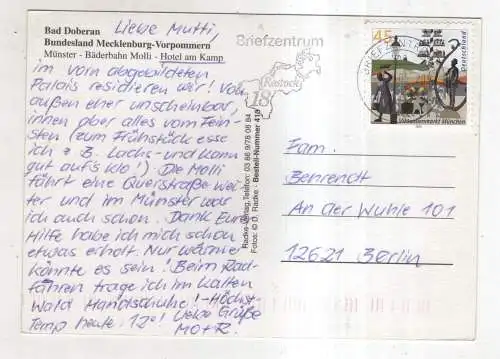 Bad Doberan
Bundesland Mecklenburg-Vorpommern
Münster - Bäderbahn Molli - Hotel am Kamp
Liebe Mutti,
im vorn abgebildeten
Palais residieren wir! Von
außen eher unscheinbar,
innen aber alles vom Fein-
sten (zum Frühstück esse
ich z B. Lachs - und kann
gut aufs Klo!) Die Molli
fährt eine Querstraße wei-
ter und im Münster war
ich auch schon. Dank Eurer
Hilfe habe ich mich schon
etwas erholt. Nur wärmer
könnte es sein! Beim Rad-
fahren trage ich im kalten
Wald Handschuhe! - Höchst
Temp heute 12°! Liebe Grüße
MO+R.
Radke-Verlag, Telefon: 03 86 9/78 08 84
Fotos: © D. Radke · Bestell-Nummer 418
Briefzentrum
18
Rostock
BRIEFZENTRUM
45
Deutschland
Valentin-Musäum München
Fam.
Behrendt
An der Wuhle 101
12621 Berlin